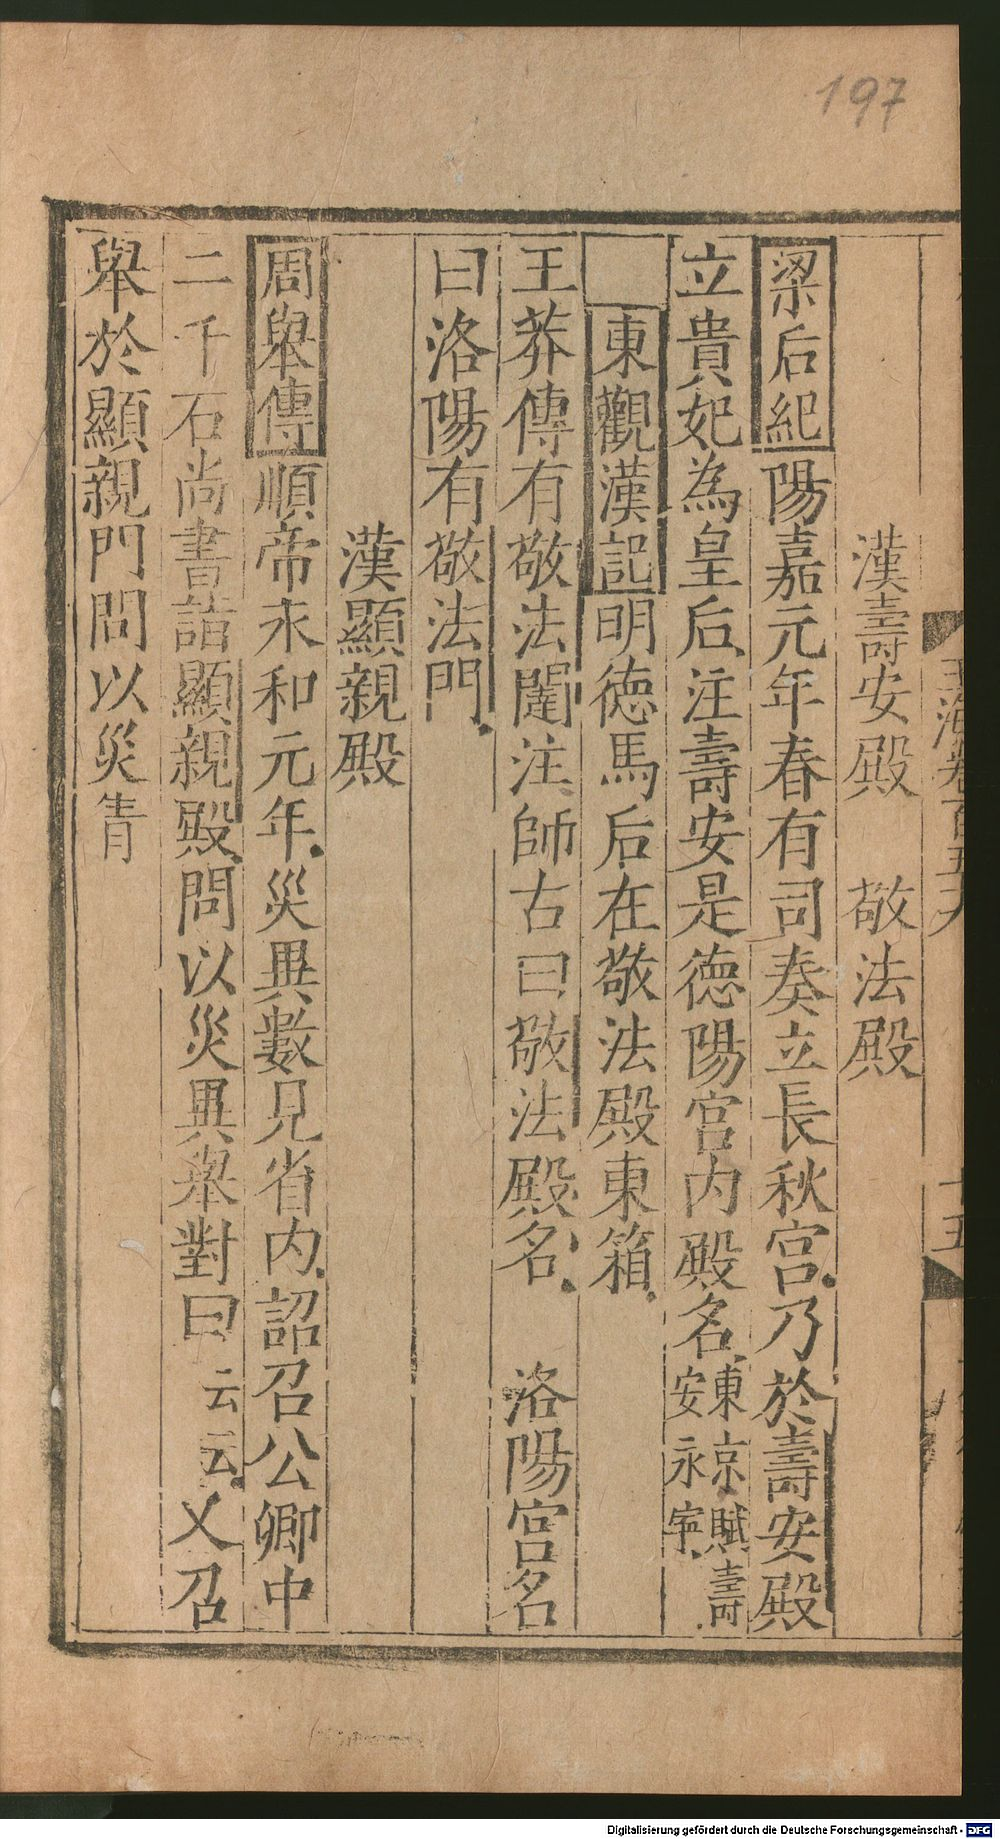 197
漢壽安殿　敬法殿
梁后紀陽嘉元年春有司奏立長秋宮乃於壽安殿
立貴妃為皇后注壽安是德陽宮内殿名東京賦壽安永寧
東觀漢記明德馬后在敬法殿東箱
王莽傳有敬法闥注師古曰敬法殿名　洛陽宮名
曰洛陽有敬法門
漢顯親殿
周舉傳順帝永和元年災異數見省内詔召公卿中
二千石尚書詣顯親殿問以災異舉對曰云云又召
舉於顯親門問以災眚
玉海卷百五
十五
Digitalisierung gefördert durch die Deutsche Forschungsgemeinschaft - DFG